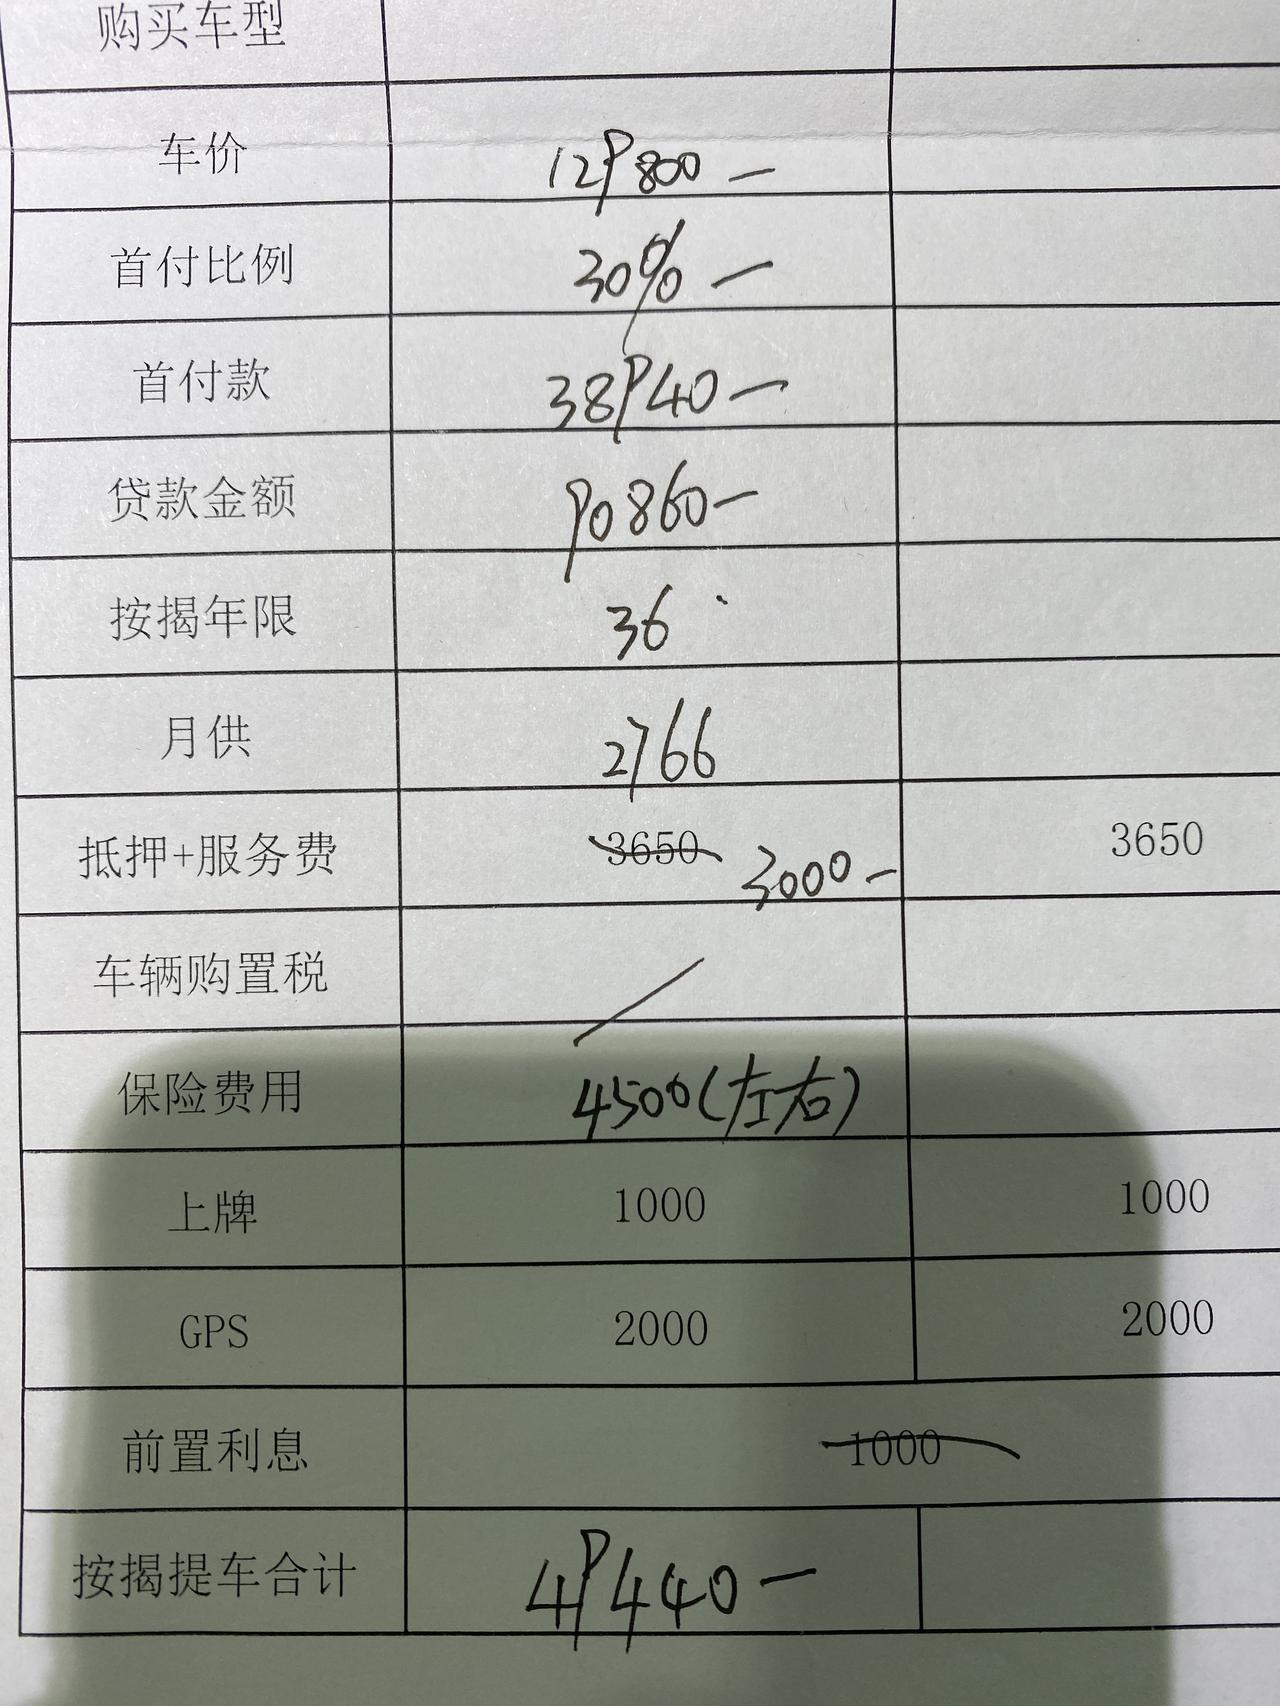 购买车型
车价 129800 —
首付比例 30% —
首付款 38940 —
贷款金额 90860 —
按揭年限 36
月供 2766
抵押+服务费 3650 3000 — 3650
车辆购置税 /
保险费用 4500(左右)
上牌 1000 1000
GPS 2000 2000
前置利息 1000
按揭提车合计 49440 —